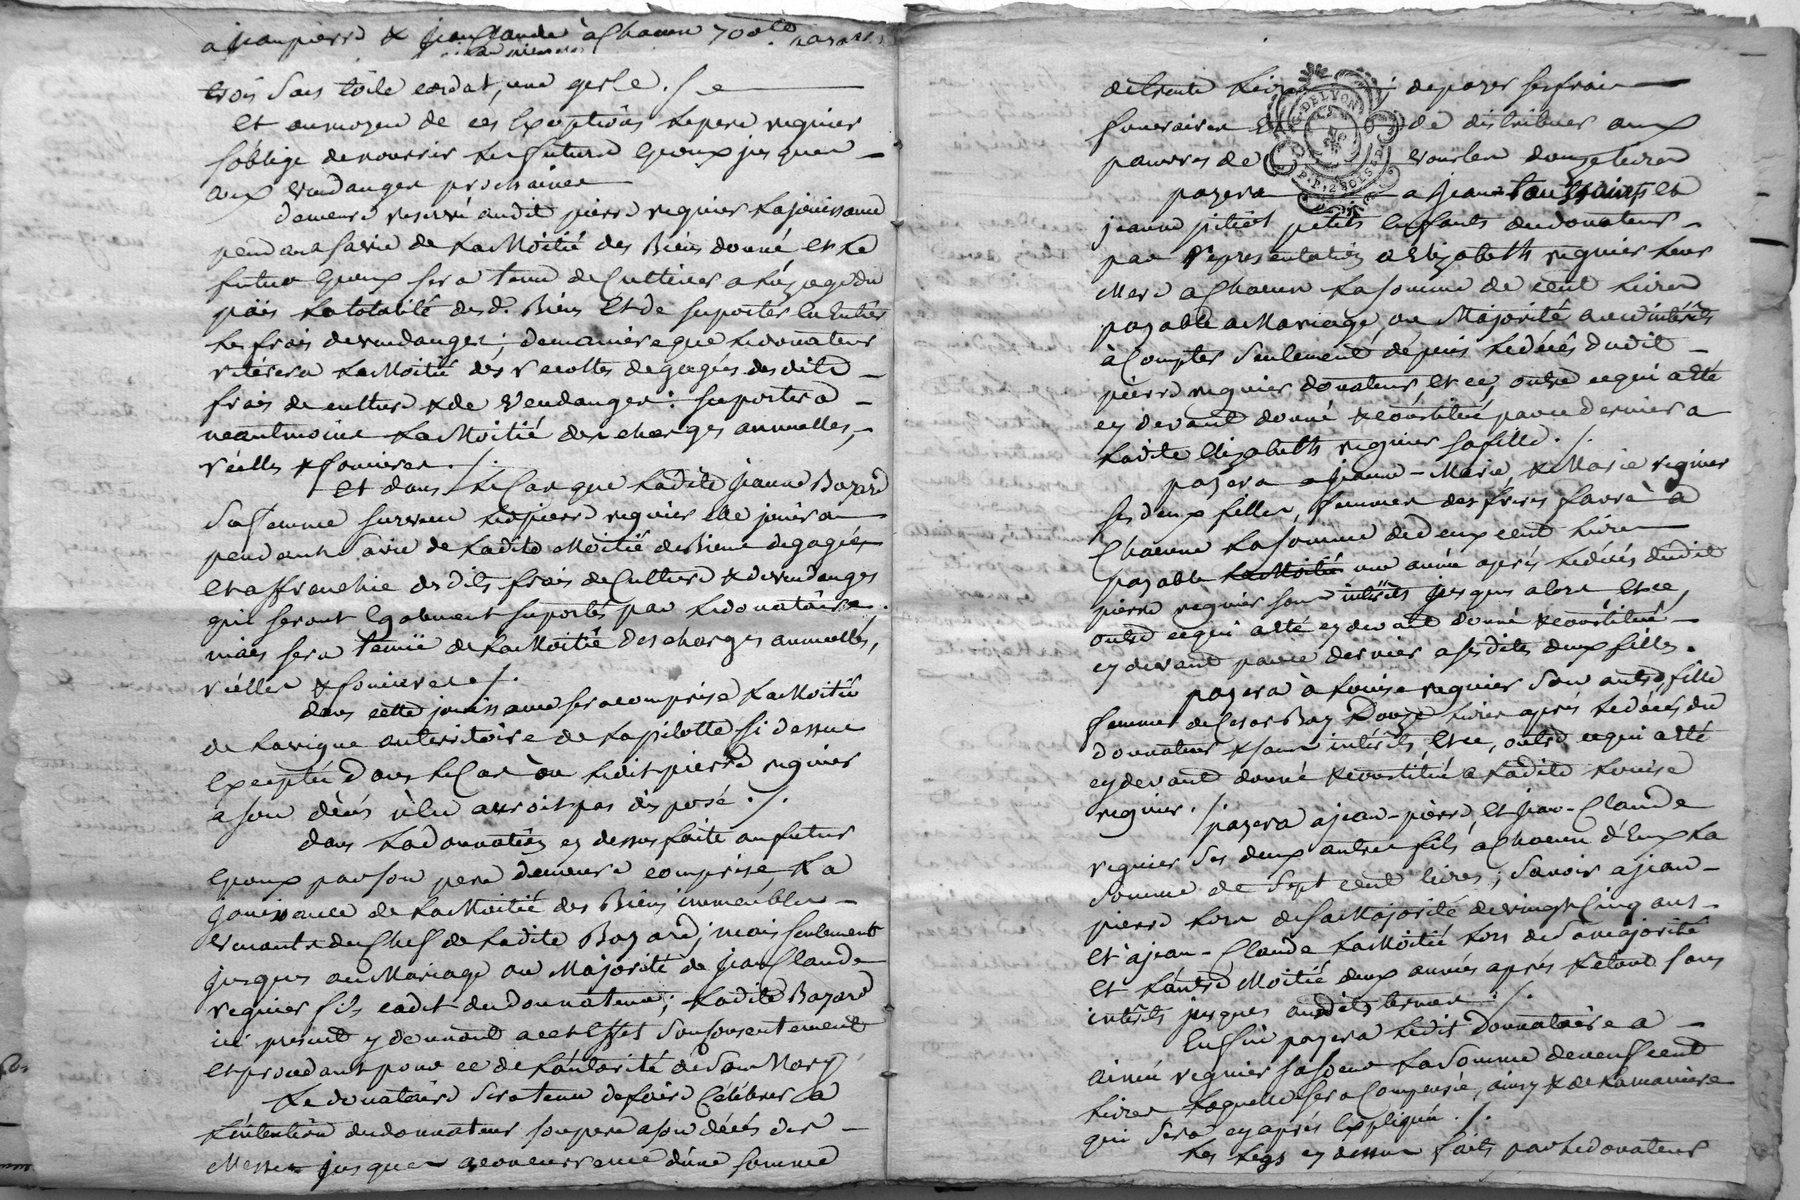 a jean pierre & jean claude à chacun 700lt
trois sacs toile cordat, une gerle ./.
Et au moyen de ces Exeptions le pere regnier
s'oblige de nourrir les futurs Epoux jusques
aux vendanges prochaines
demeure reservé audit pierre regnier la jouissance
pendant sa vie de la Moitié des Biens donné, et le
futur Epoux sera tenu de Cultiver a l'uzage du
païs la totalité desd. Biens Et de suporter en Entier
les frais de vendanges; de maniere que le donateur
retirera la Moitié des recoltes degagés desdits
frais de culture & de vendanges: suportera
neantmoins la Moitié des charges annuelles,
réelles & foncieres ./.
Et dans le Cas que ladite jeanne Bazard
sa femme survecu led pierre regnier elle jouira
pendant sa vie de ladite Moitié de Biens degagée
et affranchie desdits frais de Culture & de vendanges
qui seront Egalement suportés par le donataire.
mais sera tenüe de la Moitié des charges annuelles,
réelles & foncieres ./.
dans cette jouissance sera comprise la Moitié
de la vigne au territoire de la pilotte si dessus
Exeptée dans le Cas où ledit pierre regnier
a son décés n'En auroit pas disposé ./.
dans la donnation cy dessus faite au futur
Epoux par son pere demeure comprise la
jouissance de la Moitié des Biens immeubles
venants du Chef de ladite Bazard; mais seulement
jusques au Mariage ou Majorité de jean Claude
regnier fils cadet du Donnateur; ladite Bazard
ici presente y donnant a cet Effet son consentement
et procedant pour ce de l'autorité de son Mary
Le donataire sera tenu de faire Célébrer a
l'intention du donnateur son pere a son décés des
Messes jusques a concurrence d'une somme
de trente livres ; de payer ses frais
funeraires Et de distribuer aux
pauvres de vourles douze livres
payera a jean et
jeanne pitiot petits Enfants du donateur
par representation d'Elizabeth regnier leur
Mere a chacun la somme de cent livres
payable a Mariage, ou Majorité avec intérêts
à Compter seulement depuis le décés dudit
pierre regnier donateur et ce, outre ce qui a été
cy devant donné & constitué par ce dernier a
ladite Elizabeth regnier sa fille ./.
payera a jeanne-Marie, & Marie regnier
ses deux filles, femmes des freres favre à
Chacune la somme de deux cent livres
payable la Moitié une année aprés le décés dudit
pierre regnier sans intérêts jusques alors et ce,
outre ce qui a été cy devant donné & constitué
cy devant par ce dernier a sesdites deux filles.
payera à Louise regnier son autre fille
femme de Cesar Bay Douze livres aprés le décés du
donnateur & sans intérêts, Et ce, outre ce qui a été
cy devant donné & constitué a ladite Louise
regnier ./. payera a jean-pierre, et jean-Claude
regnier ses deux autres fils a Chacun d'Eux la
somme de sept cent livres; savoir a jean-
pierre lors de sa Majorité de vingt Cinq ans
Et à jean-Claude la Moitié lors de sa majorité
et l'autre Moitié deux années aprés & le tout sans
intérêts jusques auxdits termes ./.
Enfin payera ledit Donnataire a
aimée regnier sa soeur la somme de neuf cent
livres laquelle sera Compensée, ainsy & de la maniere
qui sera cy aprés Expliquée ./.
Les legs cy dessus faits par le donateur
DE LYON
P.P. 2 SOLS